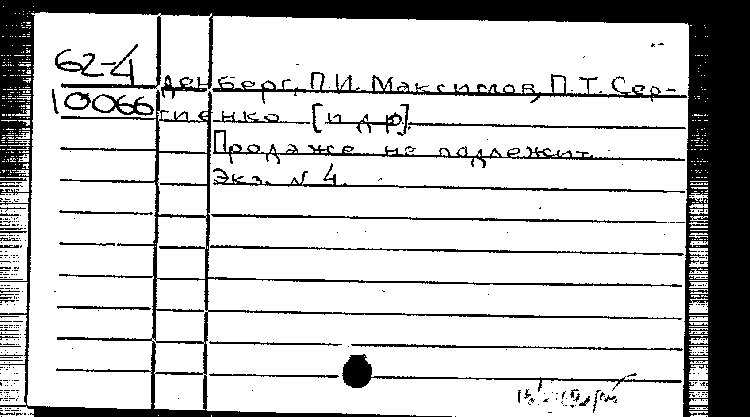 62-4
10066
денберг, П.И. Максимов, П.Т. Сер-
гиенко [и др].
Продаже не подлежит.
Экз. N 4.